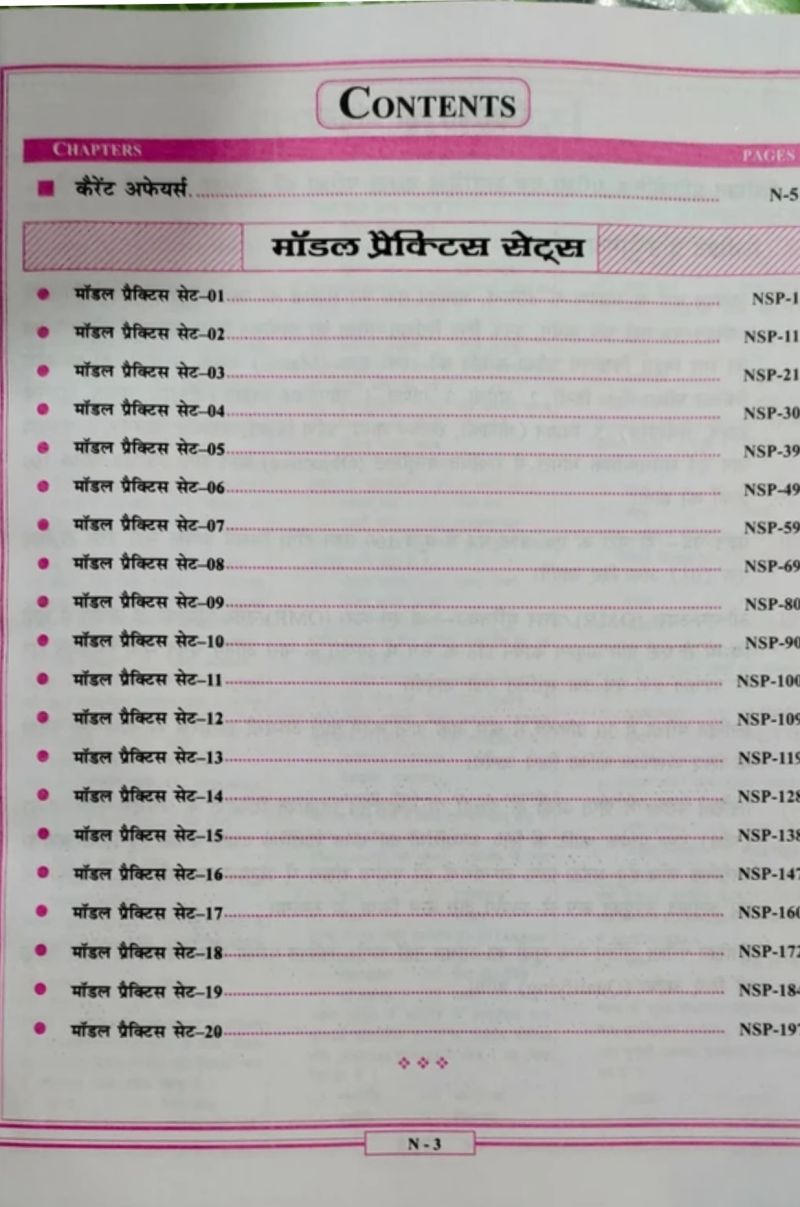 CONTENTS
CHAPTERS PAGES
कैरेंट अफेयर्स N-5
मॉडल प्रैक्टिस सेट्स
मॉडल प्रैक्टिस सेट–01 NSP-1
मॉडल प्रैक्टिस सेट–02 NSP-11
मॉडल प्रैक्टिस सेट–03 NSP-21
मॉडल प्रैक्टिस सेट–04 NSP-30
मॉडल प्रैक्टिस सेट–05 NSP-39
मॉडल प्रैक्टिस सेट–06 NSP-49
मॉडल प्रैक्टिस सेट–07 NSP-59
मॉडल प्रैक्टिस सेट–08 NSP-69
मॉडल प्रैक्टिस सेट–09 NSP-80
मॉडल प्रैक्टिस सेट–10 NSP-90
मॉडल प्रैक्टिस सेट–11 NSP-100
मॉडल प्रैक्टिस सेट–12 NSP-109
मॉडल प्रैक्टिस सेट–13 NSP-119
मॉडल प्रैक्टिस सेट–14 NSP-128
मॉडल प्रैक्टिस सेट–15 NSP-138
मॉडल प्रैक्टिस सेट–16 NSP-147
मॉडल प्रैक्टिस सेट–17 NSP-160
मॉडल प्रैक्टिस सेट–18 NSP-172
मॉडल प्रैक्टिस सेट–19 NSP-184
मॉडल प्रैक्टिस सेट–20 NSP-197
N - 3